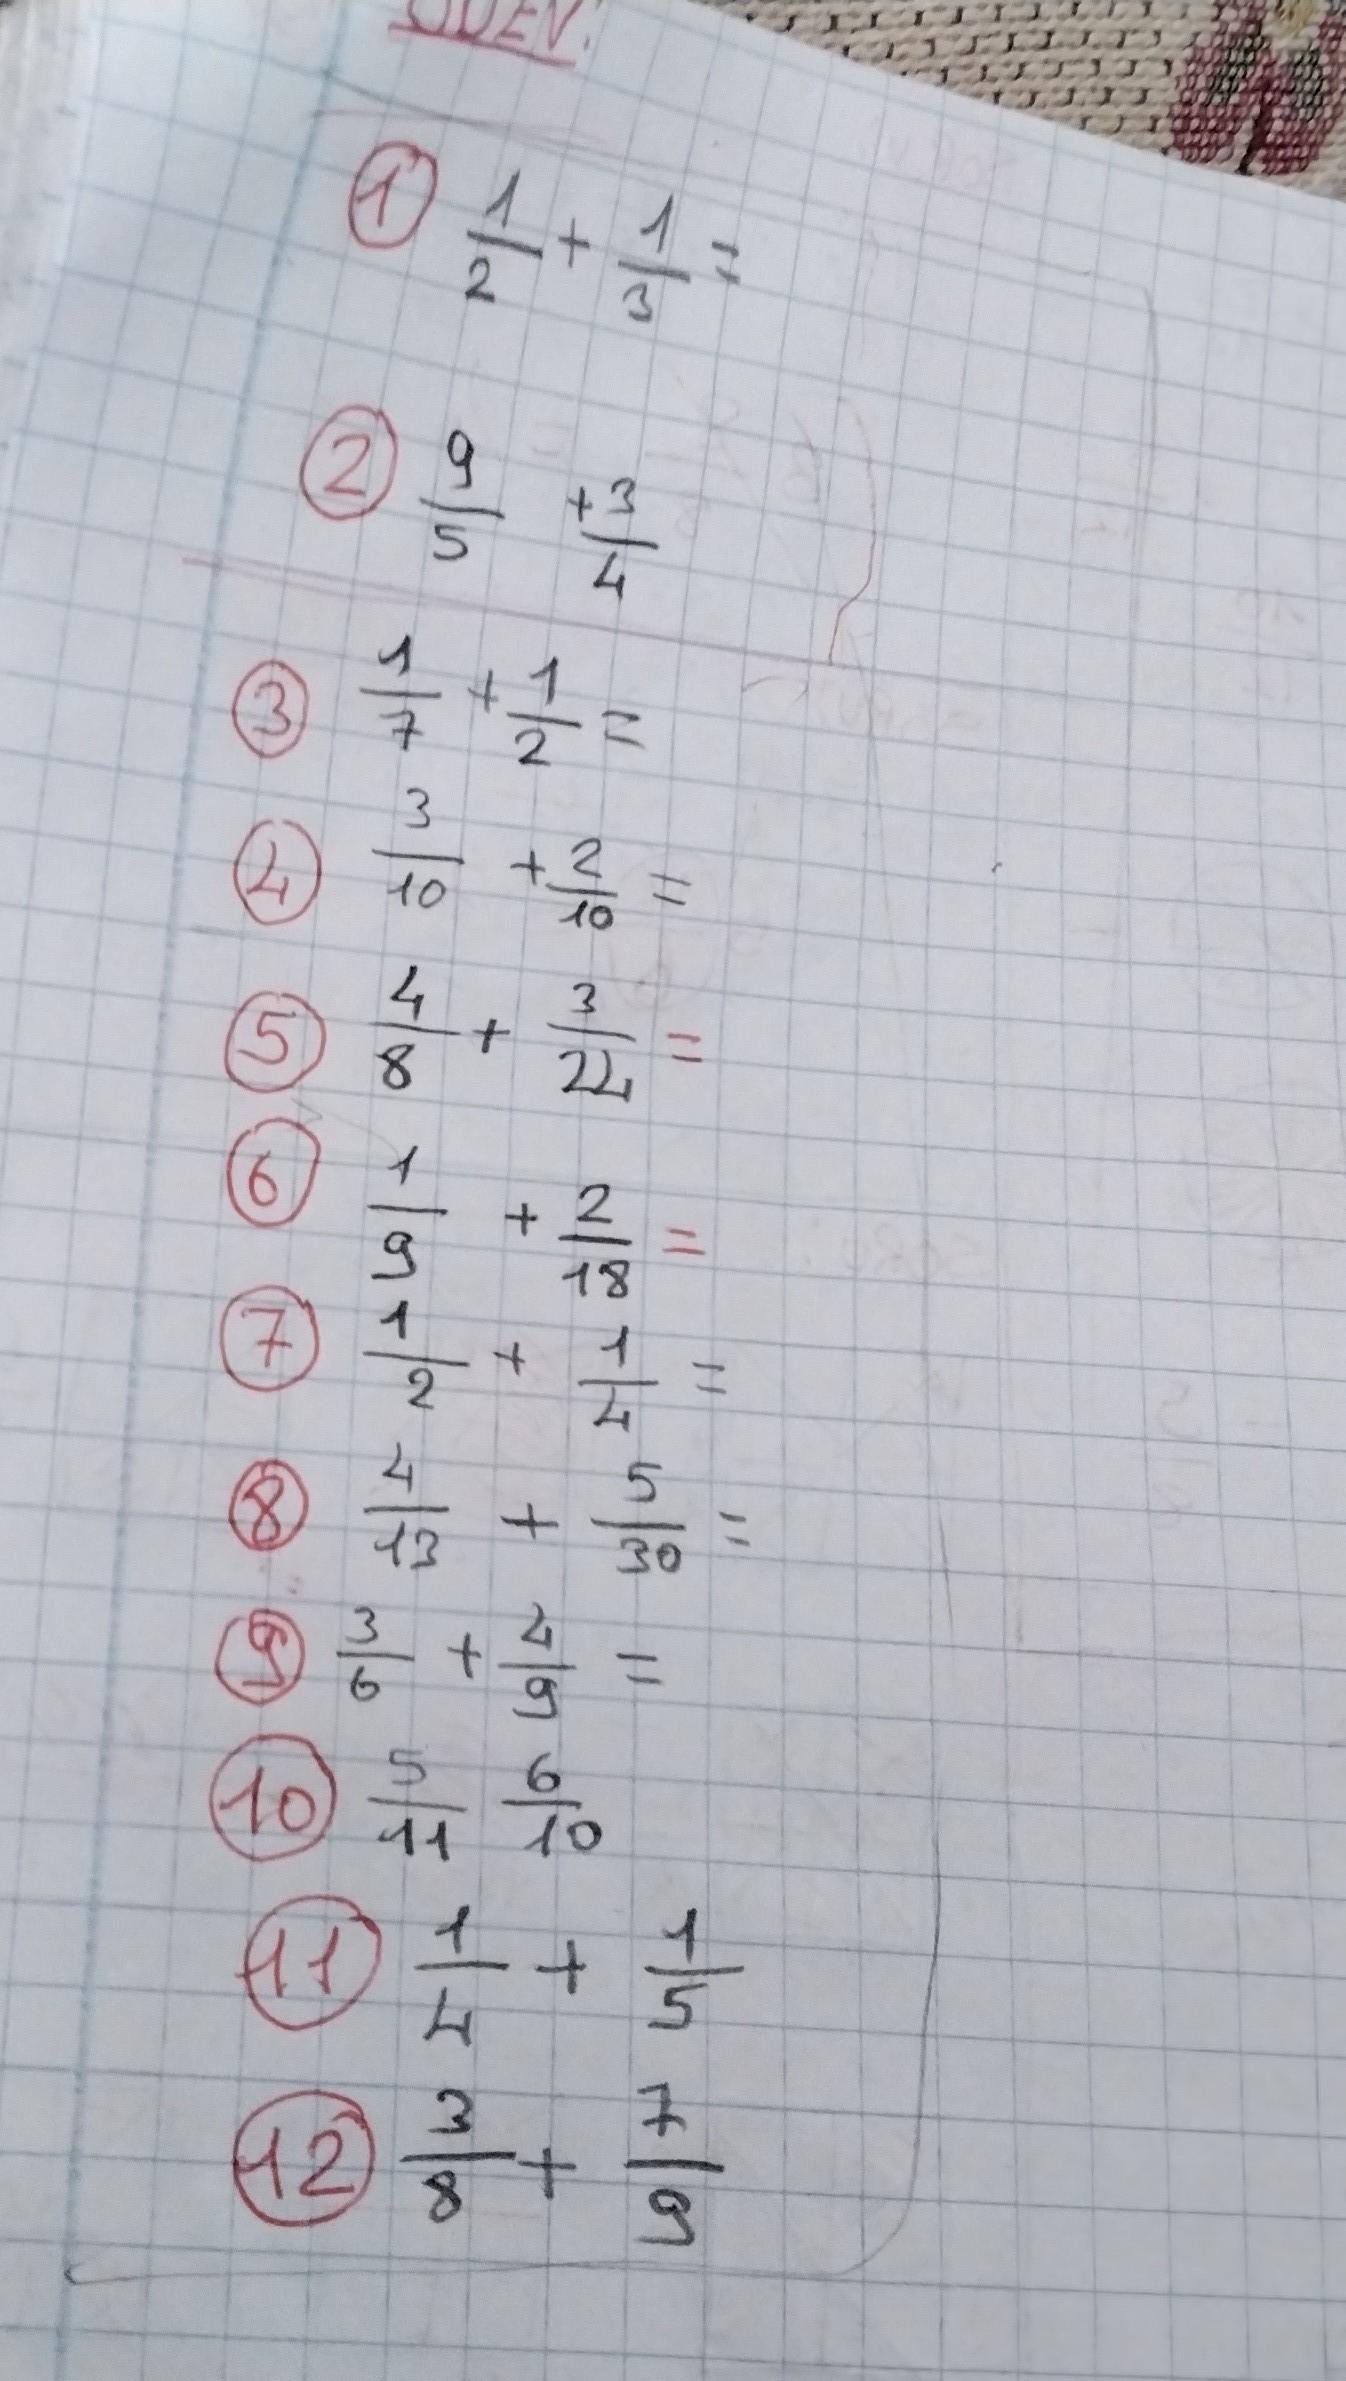 ÖDEV:
① 1/2 + 1/3 =
② 9/5 + 3/4
③ 1/7 + 1/2 =
④ 3/10 + 2/10 =
⑤ 4/8 + 3/24 =
⑥ 1/9 + 2/18 =
⑦ 1/2 + 1/4 =
⑧ 4/13 + 5/30 =
⑨ 3/6 + 4/9 =
⑩ 5/11 6/10
⑪ 1/4 + 1/5
⑫ 3/8 + 7/9